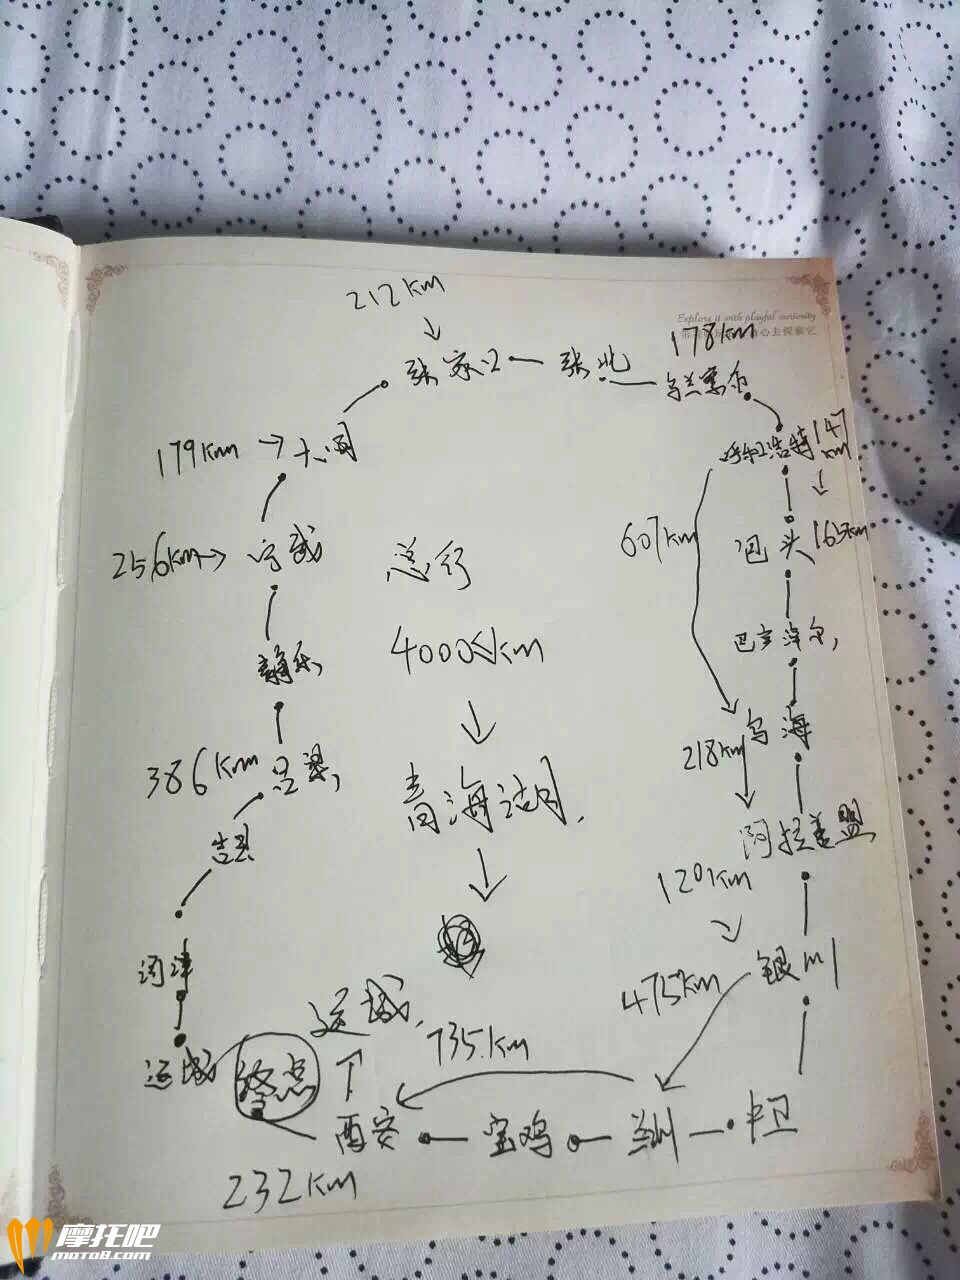 212km
Explore it with playful curiosity
178km
张家口
张北
乌兰察布
179km
大同
呼和浩特
147km
256km
宁武
总行
607km
包头
165km
静乐
4000km
巴彦淖尔
386km
吕梁
青海湖
218km
乌海
吉县
阿拉善盟
120km
河津
475km
银川
运城
终点
运城
735km
西安
宝鸡
兰州
中卫
232km
摩托吧
moto8.com